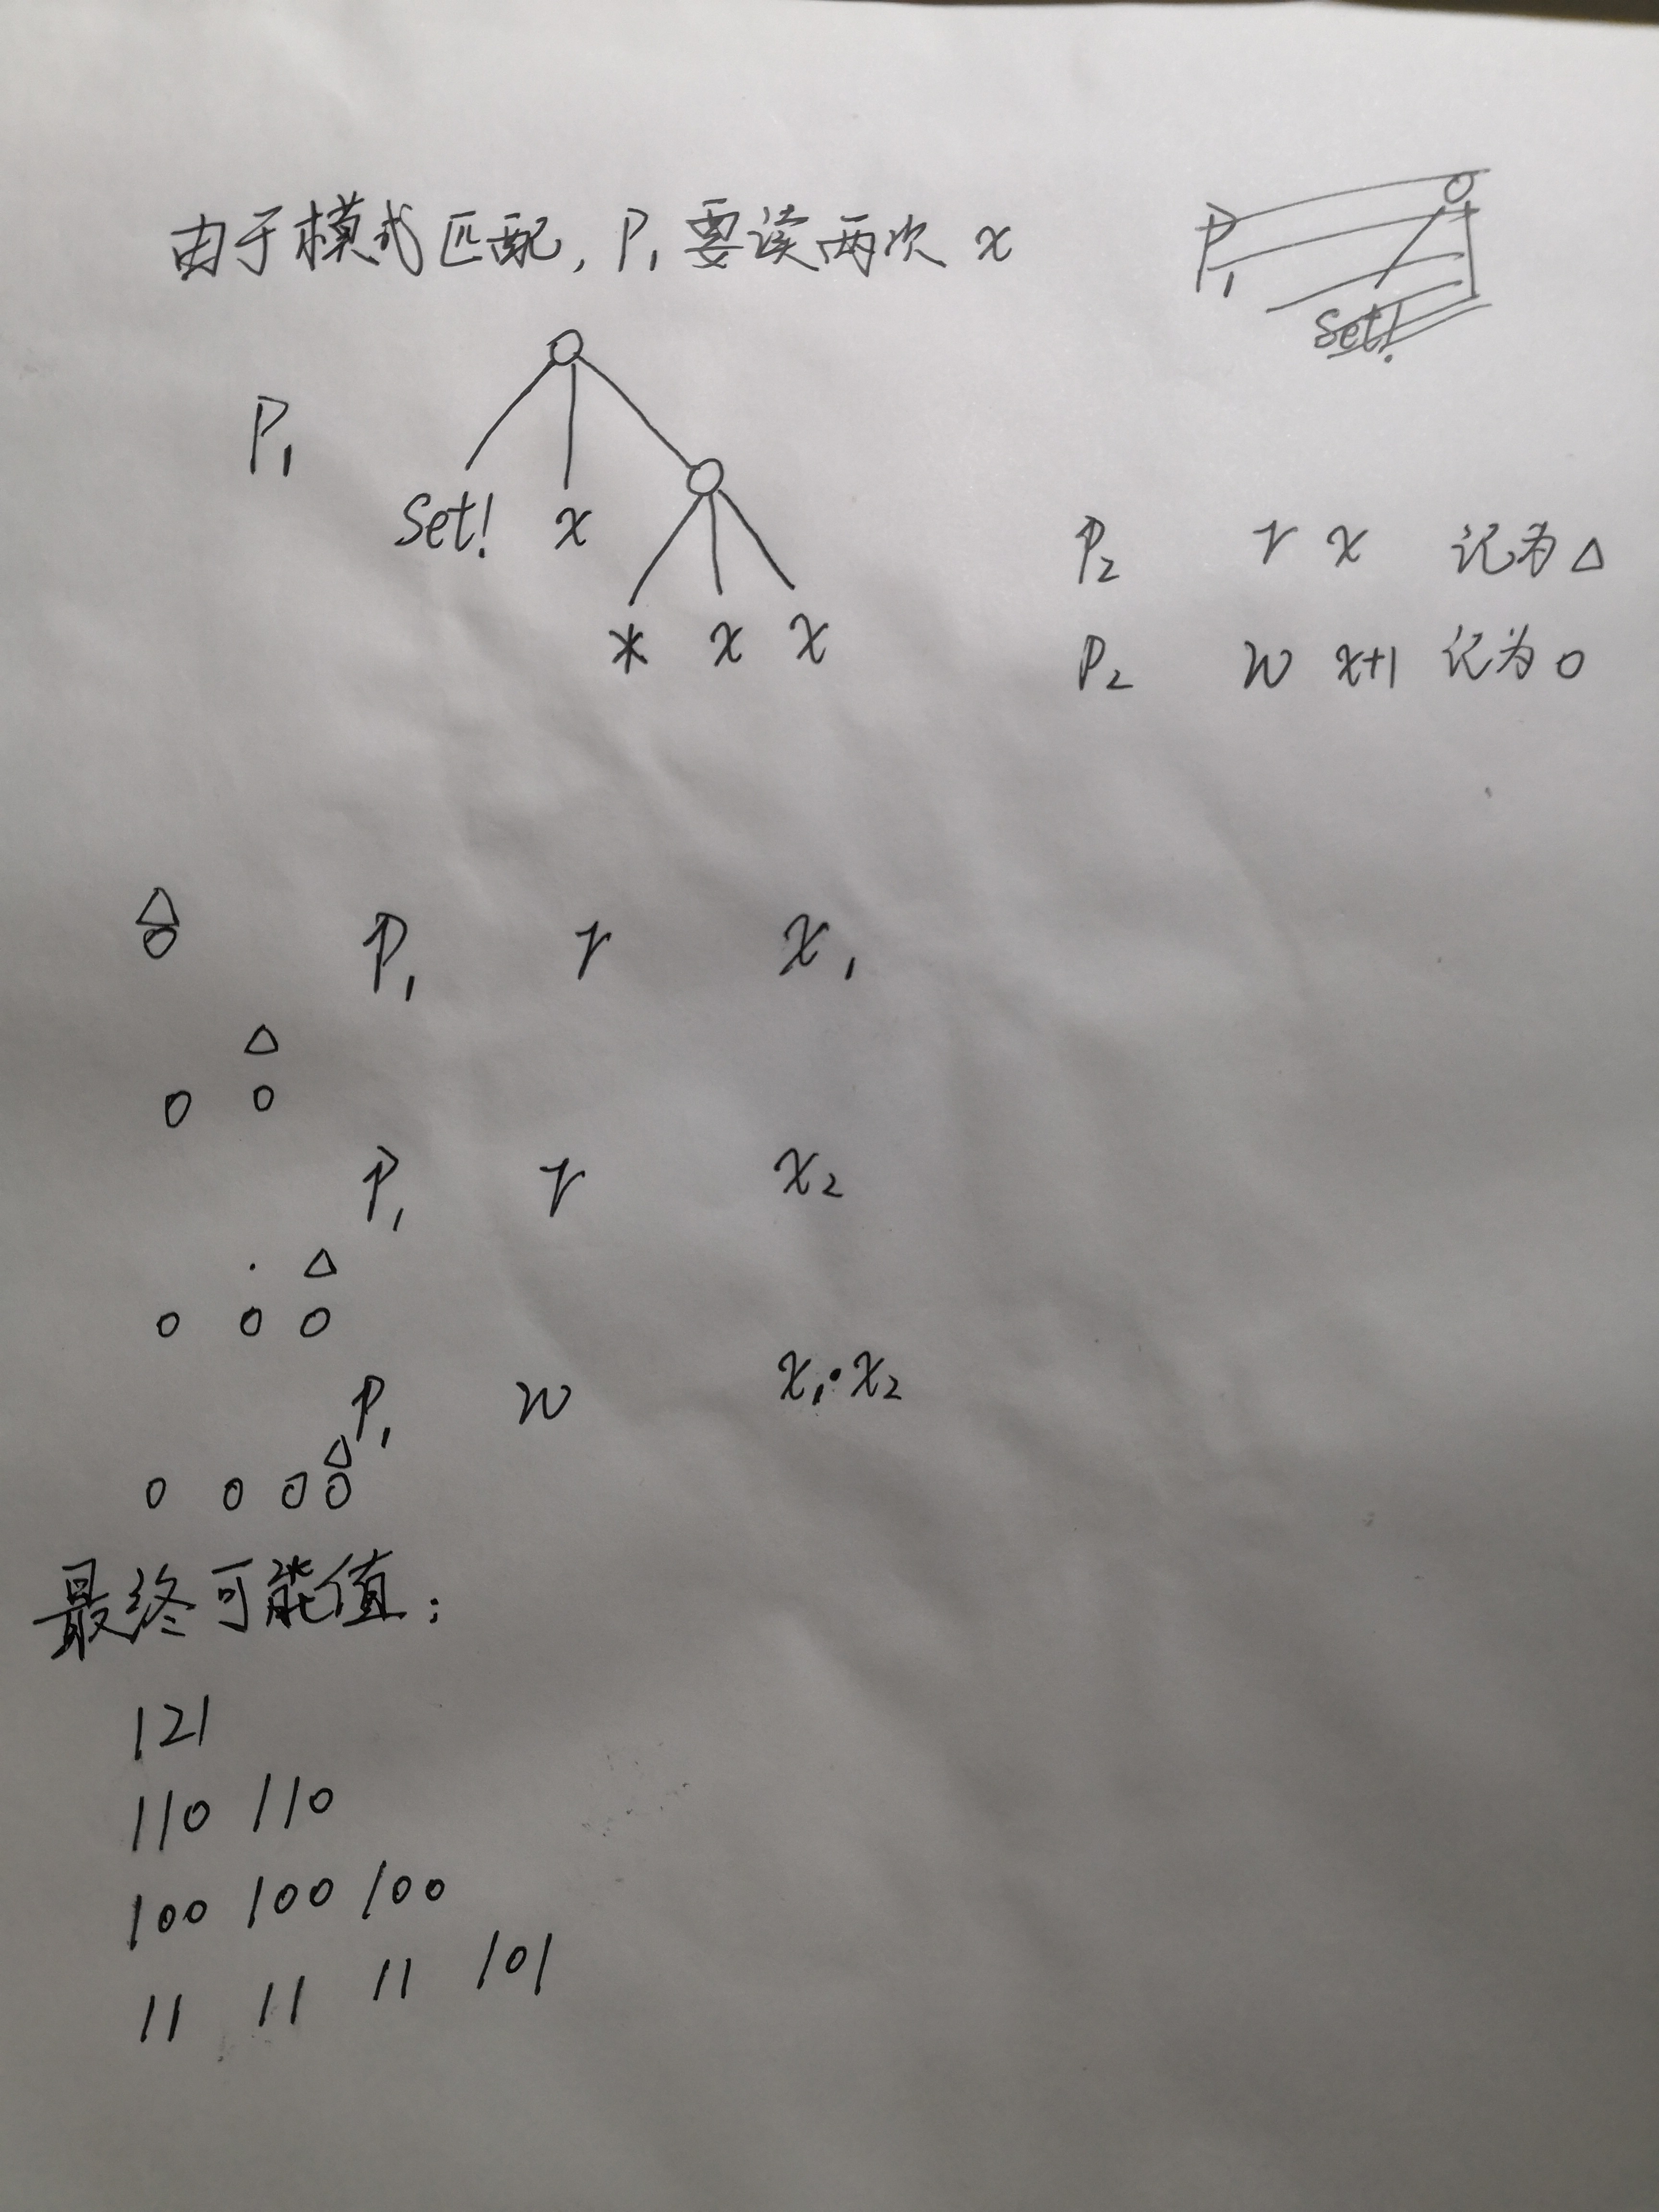 由于模式匹配, P₁ 要读两次 x
P₁
Set!
P₁
Set! x
* x x
P₂ r x 记为 △
P₂ w x+1 记为 o
△
o P₁ r x₁
△
o o
P₁ r x₂
△
o o o
P₁ w x₁·x₂
△
o o o o
最终可能值:
121
110 110
100 100 100
11 11 11 101